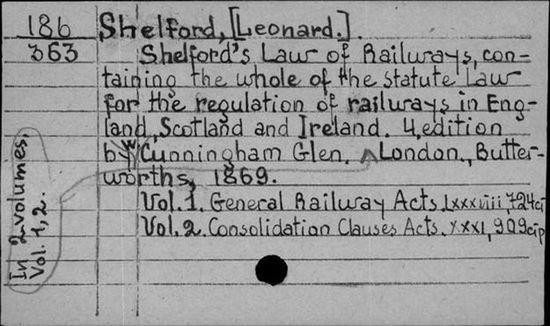 186 Shelford, [Leonard.].
363 Shelford's Law of Railways, con-
taining the whole of the statute law
for the regulation of railways in Eng-
land, Scotland and Ireland. 4. edition
by W Cunningham Glen. ^ London., Butter-
worths, 1869.
Vol. 1. General Railway Acts. lxxxviii, 724
Vol. 2. Consolidation Clauses Acts. xxxi, 909
In 2 volumes.
Vol. 1, 2.